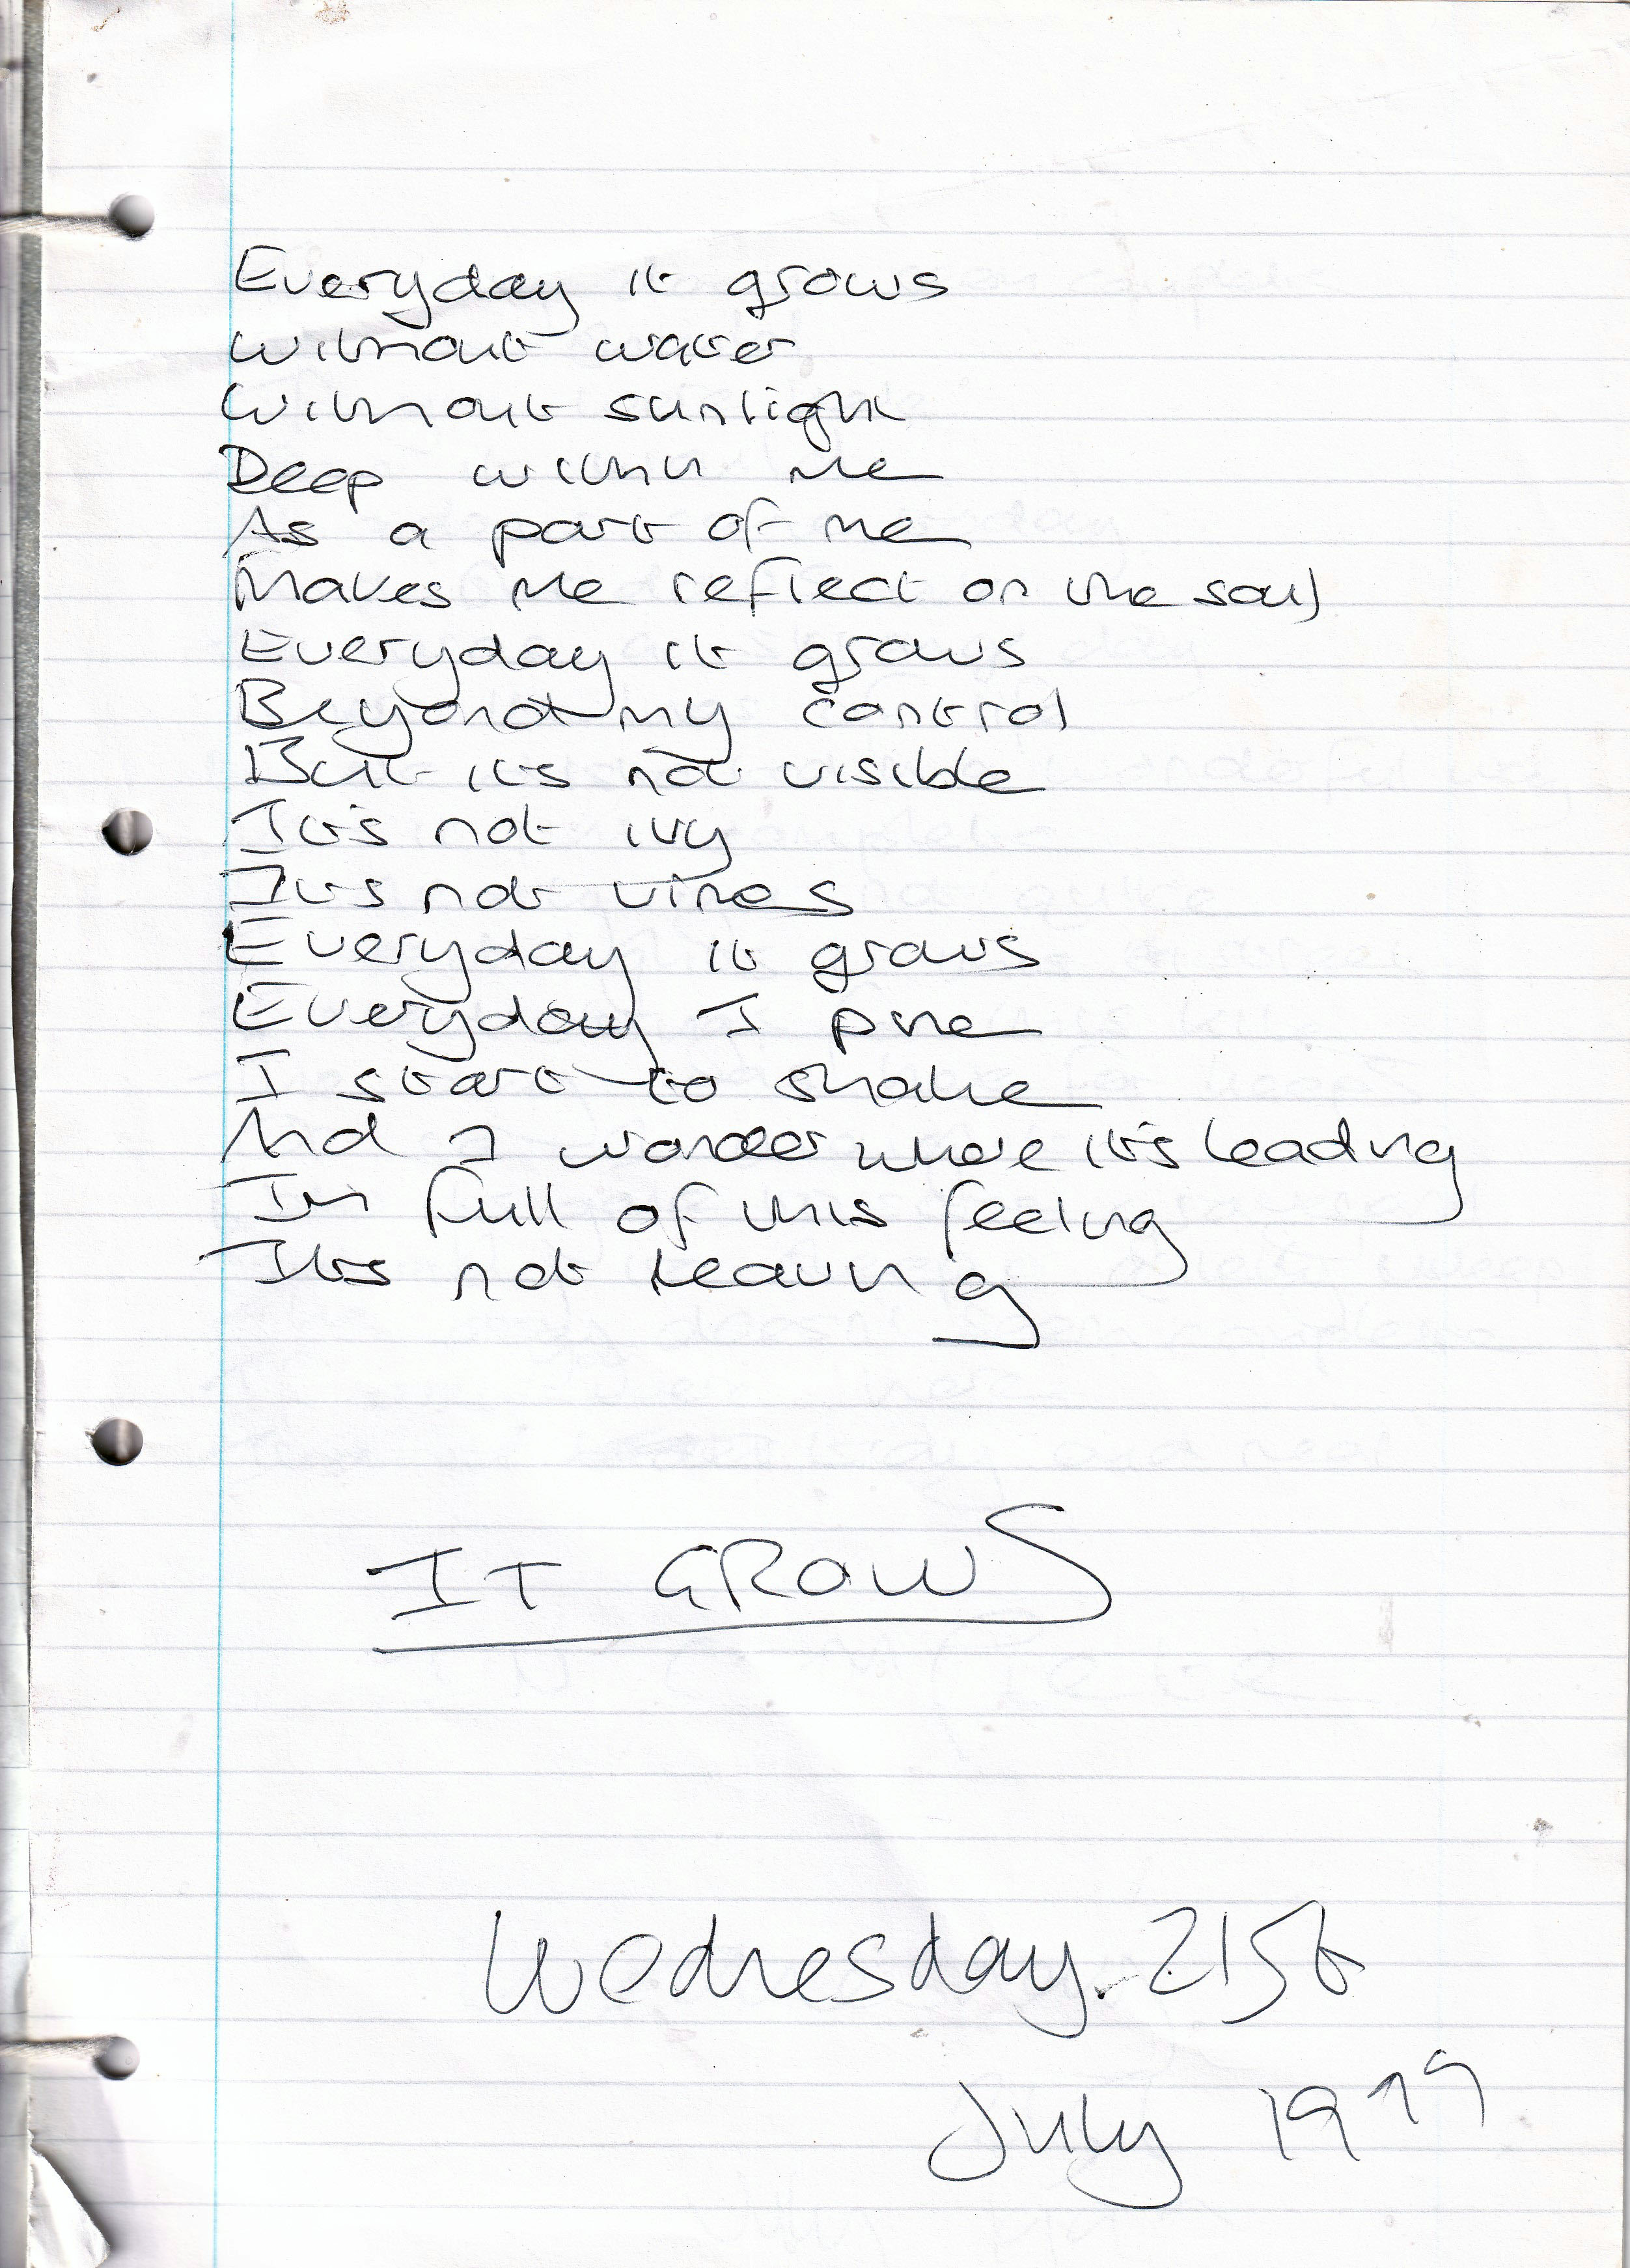 Everyday it grows
without water
Without sunlight
Deep within me
As a part of me
Makes me reflect on the soul
Everyday it grows
Beyond my control
But its not visible
It's not ivy
Its not vines
Everyday it grows
Everyday I pine
I start to shake
And I wonder where it's leading
Im full of this feeling
Its not leaving
IT GROWS
Wednesday. 21st
July 1999